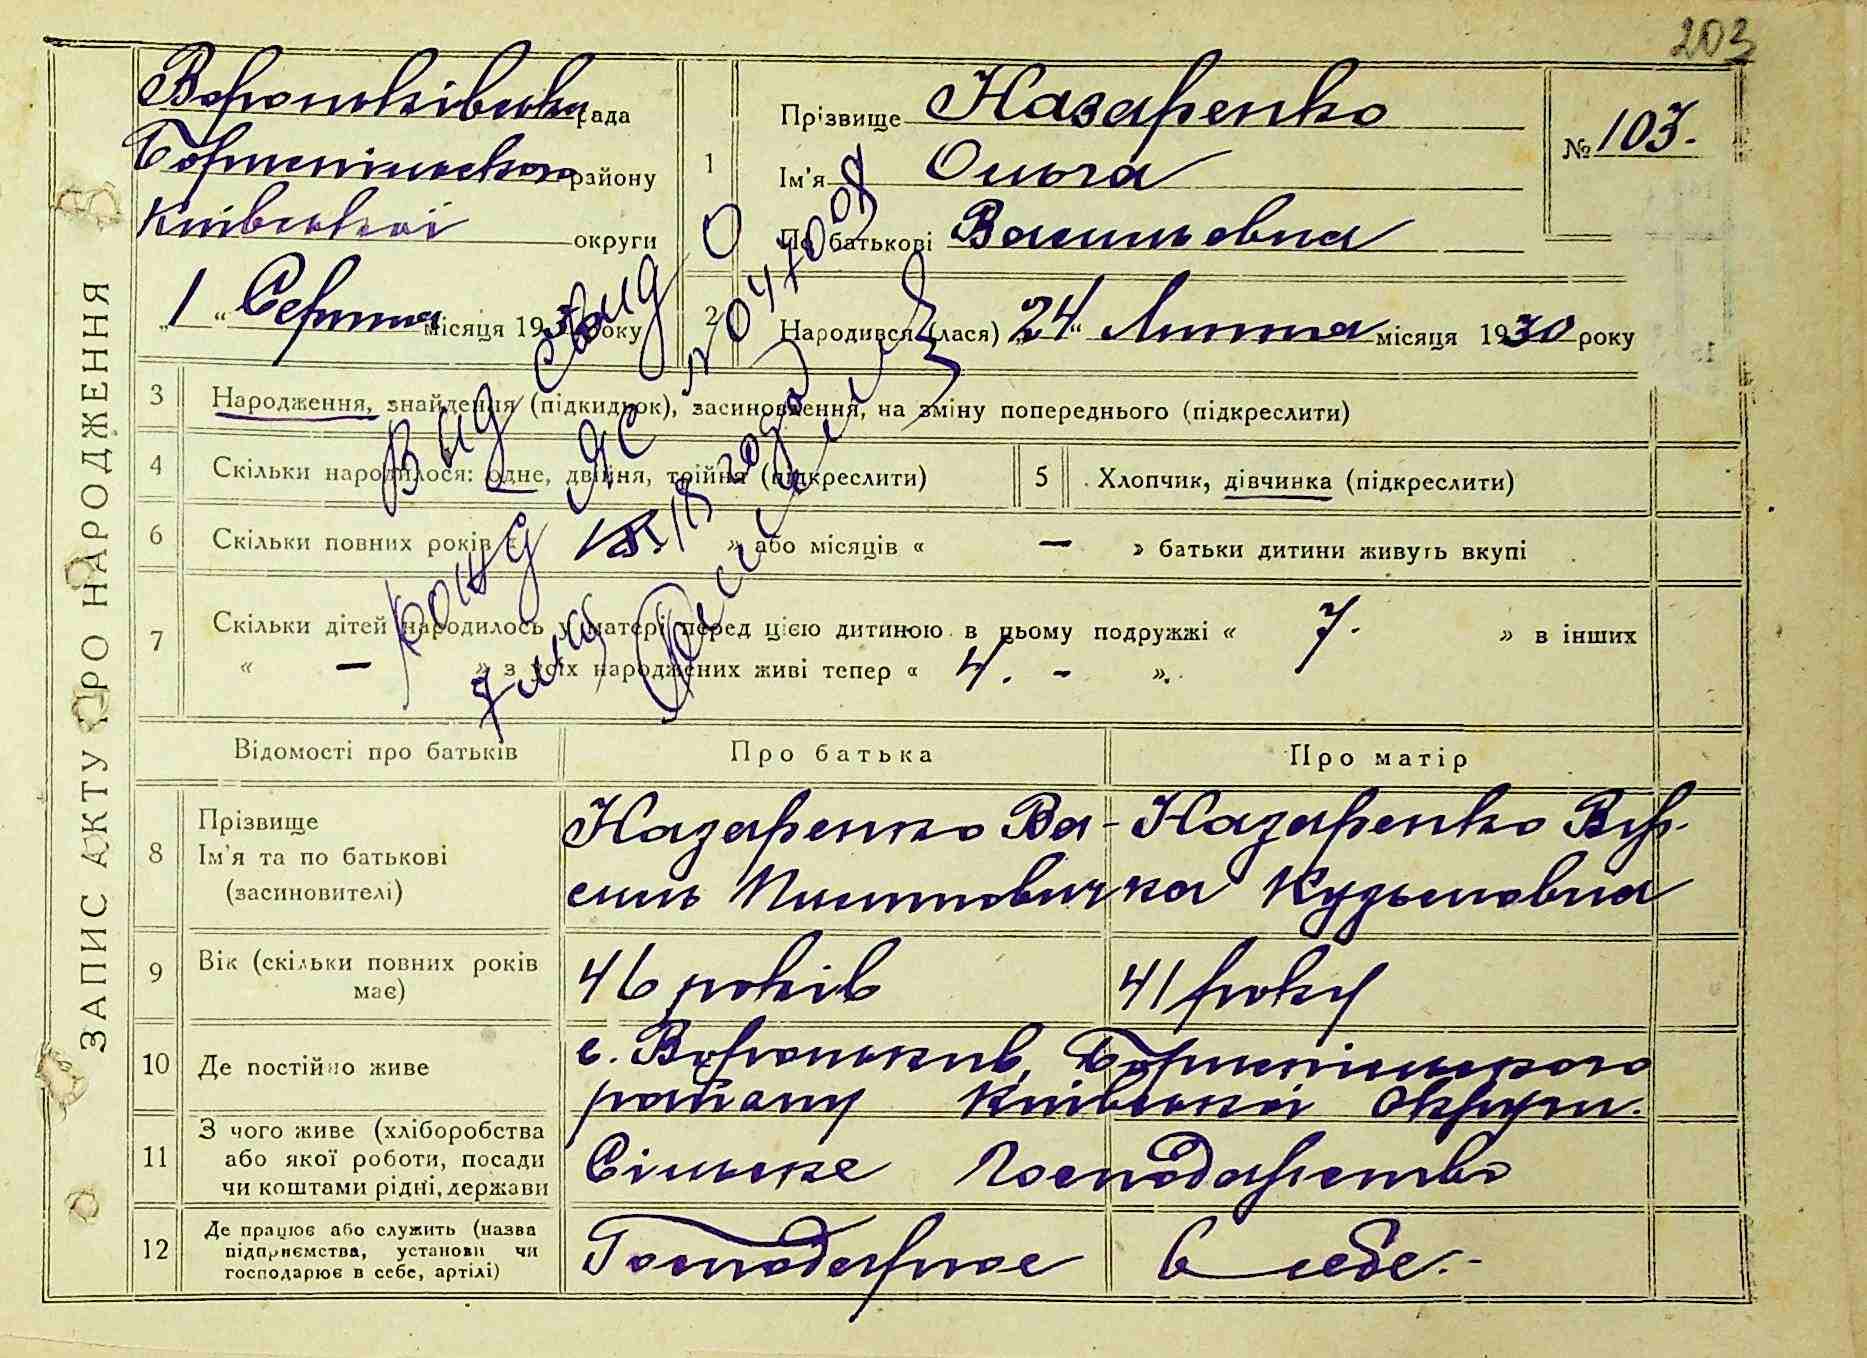 203
ЗАПИС АКТУ ПРО НАРОДЖЕННЯ
Вороньківська рада
Бориспільского району
Київської округи
„1“ Серпня місяця 1930 року
1
Прізвище Назаренко
Ім'я Ольга
По батькові Васильовна
№ 103.
2 Народився (лася) „24“ Лютня місяця 1930 року
3 Народження, знайдення (підкидьок), засиновлення, на зміну попереднього (підкреслити)
4 Скільки народилося: одне, двійня, трійня (підкреслити) 5 Хлопчик, дівчинка (підкреслити)
6 Скільки повних років « » або місяців « — » батьки дитини живуть вкупі
7 Скільки дітей народилось у матері перед цією дитиною в цьому подружжі « 7. » в інших
« — » з усіх народжених живі тепер « 4. - ».
Выд свид о
рожд ЯС № 0470
Відомості про батьків Про батька Про матір
8 Прізвище
Ім'я та по батькові
(засиновителі)
Назаренко Ва-
силь Пилипович
Назаренко Вар-
ка Кузьмовна
9 Вік (скільки повних років
має)
46 років 41 року
10 Де постійно живе
с. Вороньків, Бориспільского
району Київської Округи.
11 З чого живе (хліборобства
або якої роботи, посади
чи коштами рідні, держави
Сільське Господарство
12 Де працює або служить (назва
підприємства, установи чи
господарює в себе, артілі)
Господарює в себе.-